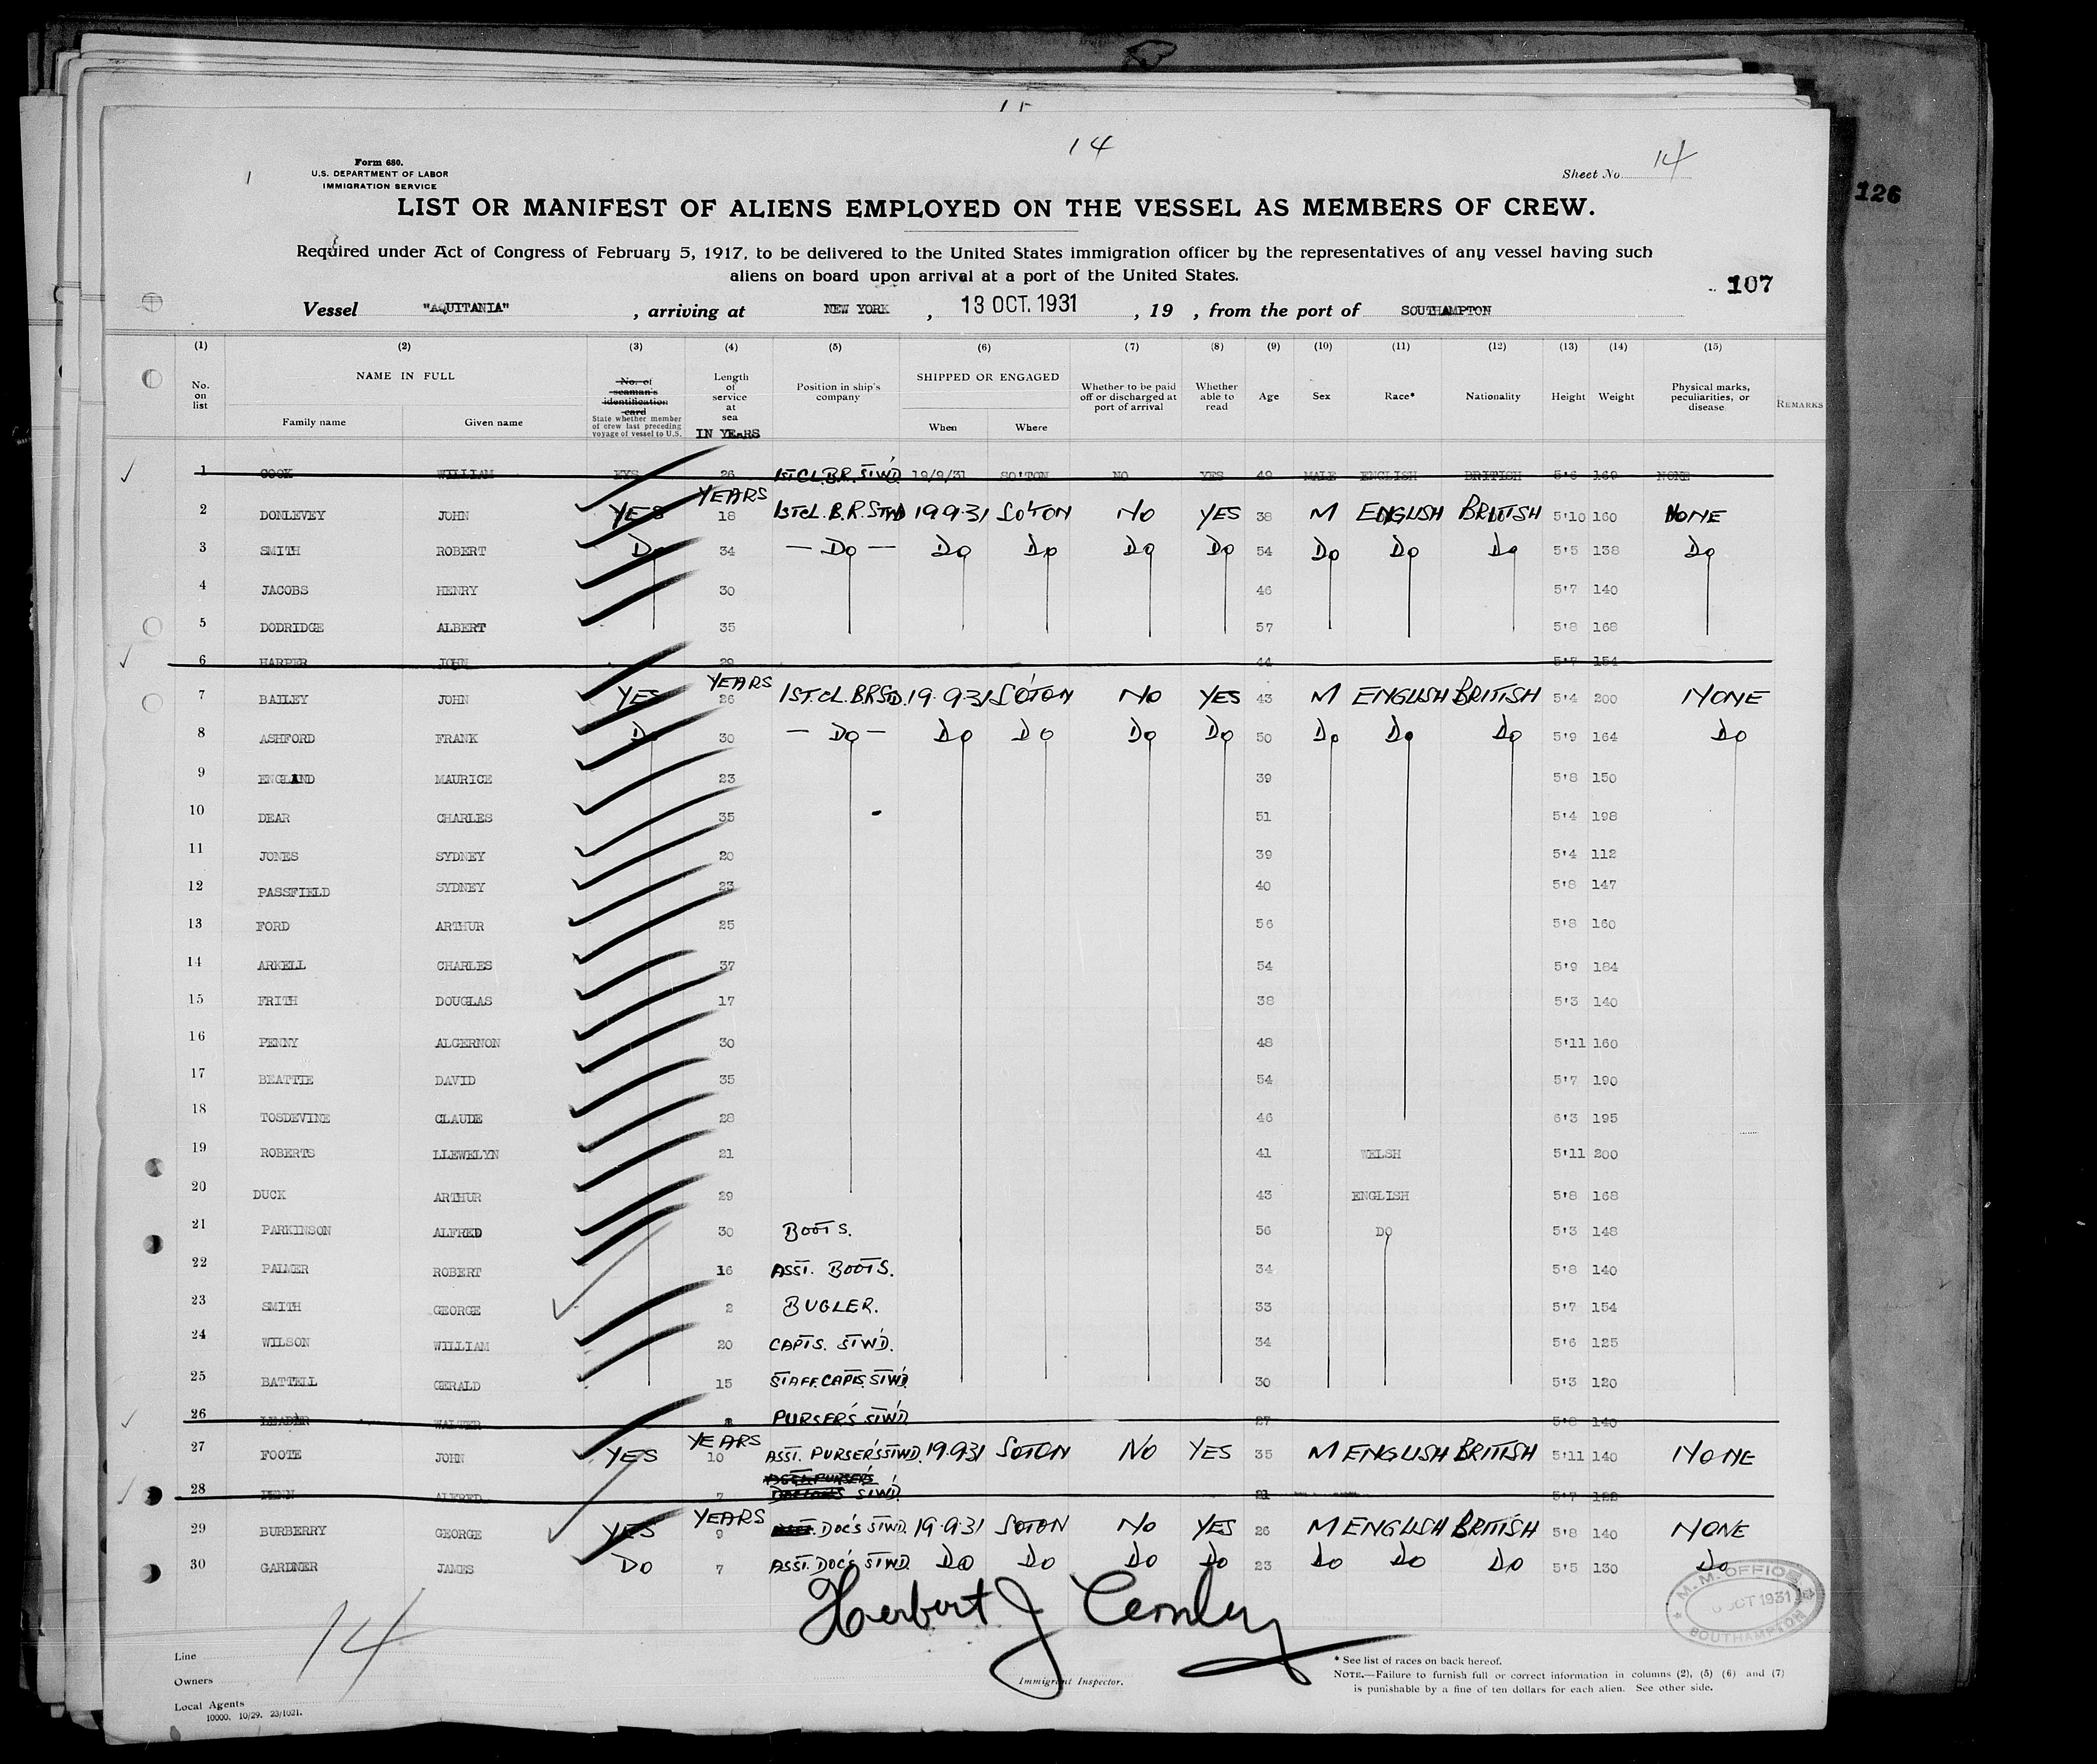 14
Form 680.
U.S. DEPARTMENT OF LABOR
IMMIGRATION SERVICE
Sheet No. 14
126
LIST OR MANIFEST OF ALIENS EMPLOYED ON THE VESSEL AS MEMBERS OF CREW.
Required under Act of Congress of February 5, 1917, to be delivered to the United States immigration officer by the representatives of any vessel having such
aliens on board upon arrival at a port of the United States.
107
Vessel "AQUITANIA", arriving at NEW YORK, 13 OCT. 1931, 19 , from the port of SOUTHAMPTON
(1) (2) (3) (4) (5) (6) (7) (8) (9) (10) (11) (12) (13) (14) (15)
No. on list
NAME IN FULL
Family name Given name
No. of seaman's identification card
State whether member of crew last preceding voyage of vessel to U.S.
Length of service at sea IN YEARS
Position in ship's company
SHIPPED OR ENGAGED
When Where
Whether to be paid off or discharged at port of arrival
Whether able to read
Age Sex Race* Nationality Height Weight
Physical marks, peculiarities, or disease
REMARKS
1 COOK WILLIAM EYS 26 1ST CL. B.R. STWD 19/9/31 SO'TON NO YES 49 MALE ENGLISH BRITISH 5'6 169 NONE
2 DONLEVEY JOHN YES YEARS 18 1ST CL. B.R. STWD 19 9 31 SO'TON NO YES 38 M ENGLISH BRITISH 5'10 160 NONE
3 SMITH ROBERT DO 34 — DO — DO DO DO DO 54 DO DO DO 5'5 138 DO
4 JACOBS HENRY 30 46 5'7 140
5 DODRIDGE ALBERT 35 57 5'8 168
6 HARPER JOHN 29 44 5'7 154
7 BAILEY JOHN YES YEARS 26 1ST. CL. B.R STD. 19.9.31 SO'TON NO YES 43 M ENGLISH BRITISH 5'4 200 NONE
8 ASHFORD FRANK DO 30 — DO — DO DO DO DO 50 DO DO DO 5'9 164 DO
9 ENGLAND MAURICE 23 39 5'8 150
10 DEAR CHARLES 35 51 5'4 198
11 JONES SYDNEY 20 39 5'4 112
12 PASSFIELD SYDNEY 23 40 5'8 147
13 FORD ARTHUR 25 56 5'8 160
14 ARKELL CHARLES 37 54 5'9 184
15 FRITH DOUGLAS 17 38 5'3 140
16 PENNY ALGERNON 30 48 5'11 160
17 BEATTIE DAVID 35 54 5'7 190
18 TOSDEVINE CLAUDE 28 46 6'3 195
19 ROBERTS LLEWELYN 21 41 WELSH 5'11 200
20 DUCK ARTHUR 29 43 ENGLISH 5'8 168
21 PARKINSON ALFRED 30 BOOTS. 56 DO 5'3 148
22 PALMER ROBERT 16 ASST. BOOTS. 34 5'8 140
23 SMITH GEORGE 2 BUGLER. 33 5'7 154
24 WILSON WILLIAM 20 CAPTS. STWD. 34 5'6 125
25 BATTELL GERALD 15 STAFF. CAPTS. STWD. 30 5'3 120
26 LEADER WALTER PURSER'S STWD 27 5'8 140
27 FOOTE JOHN YES YEARS 10 ASST. PURSER'S STWD. 19.9.31 SOTON NO YES 35 M ENGLISH BRITISH 5'11 140 NONE
28 ALFRED 7 STWD. 21 5'7
29 BURBERRY GEORGE YES YEARS 9 DOC'S STWD. 19.9.31 SOTON NO YES 26 M ENGLISH BRITISH 5'8 140 NONE
30 GARDNER JAMES DO 7 ASST. DOC'S STWD. DO DO DO DO 23 DO DO DO 5'5 130 DO
M.M. OFFICE
OCT 1931
SOUTHAMPTON
14
Herbert J
Line
Owners
Local Agents
10000. 10/29. 23/1021.
Immigrant Inspector.
* See list of races on back hereof.
NOTE.—Failure to furnish full or correct information in columns (2), (5) (6) and (7)
is punishable by a fine of ten dollars for each alien. See other side.